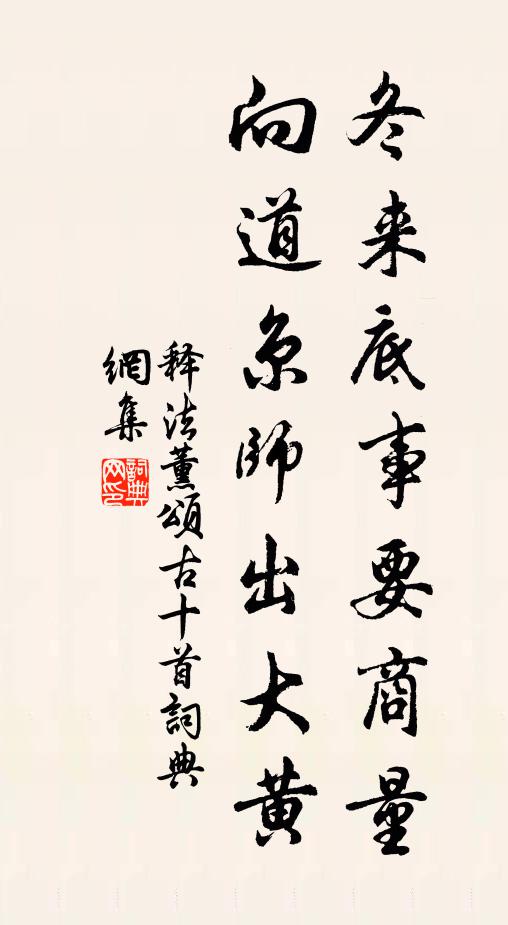 冬来底事要商量
向道京師出大黄
释法薰頌古十首詞典
網集
詞典
网印